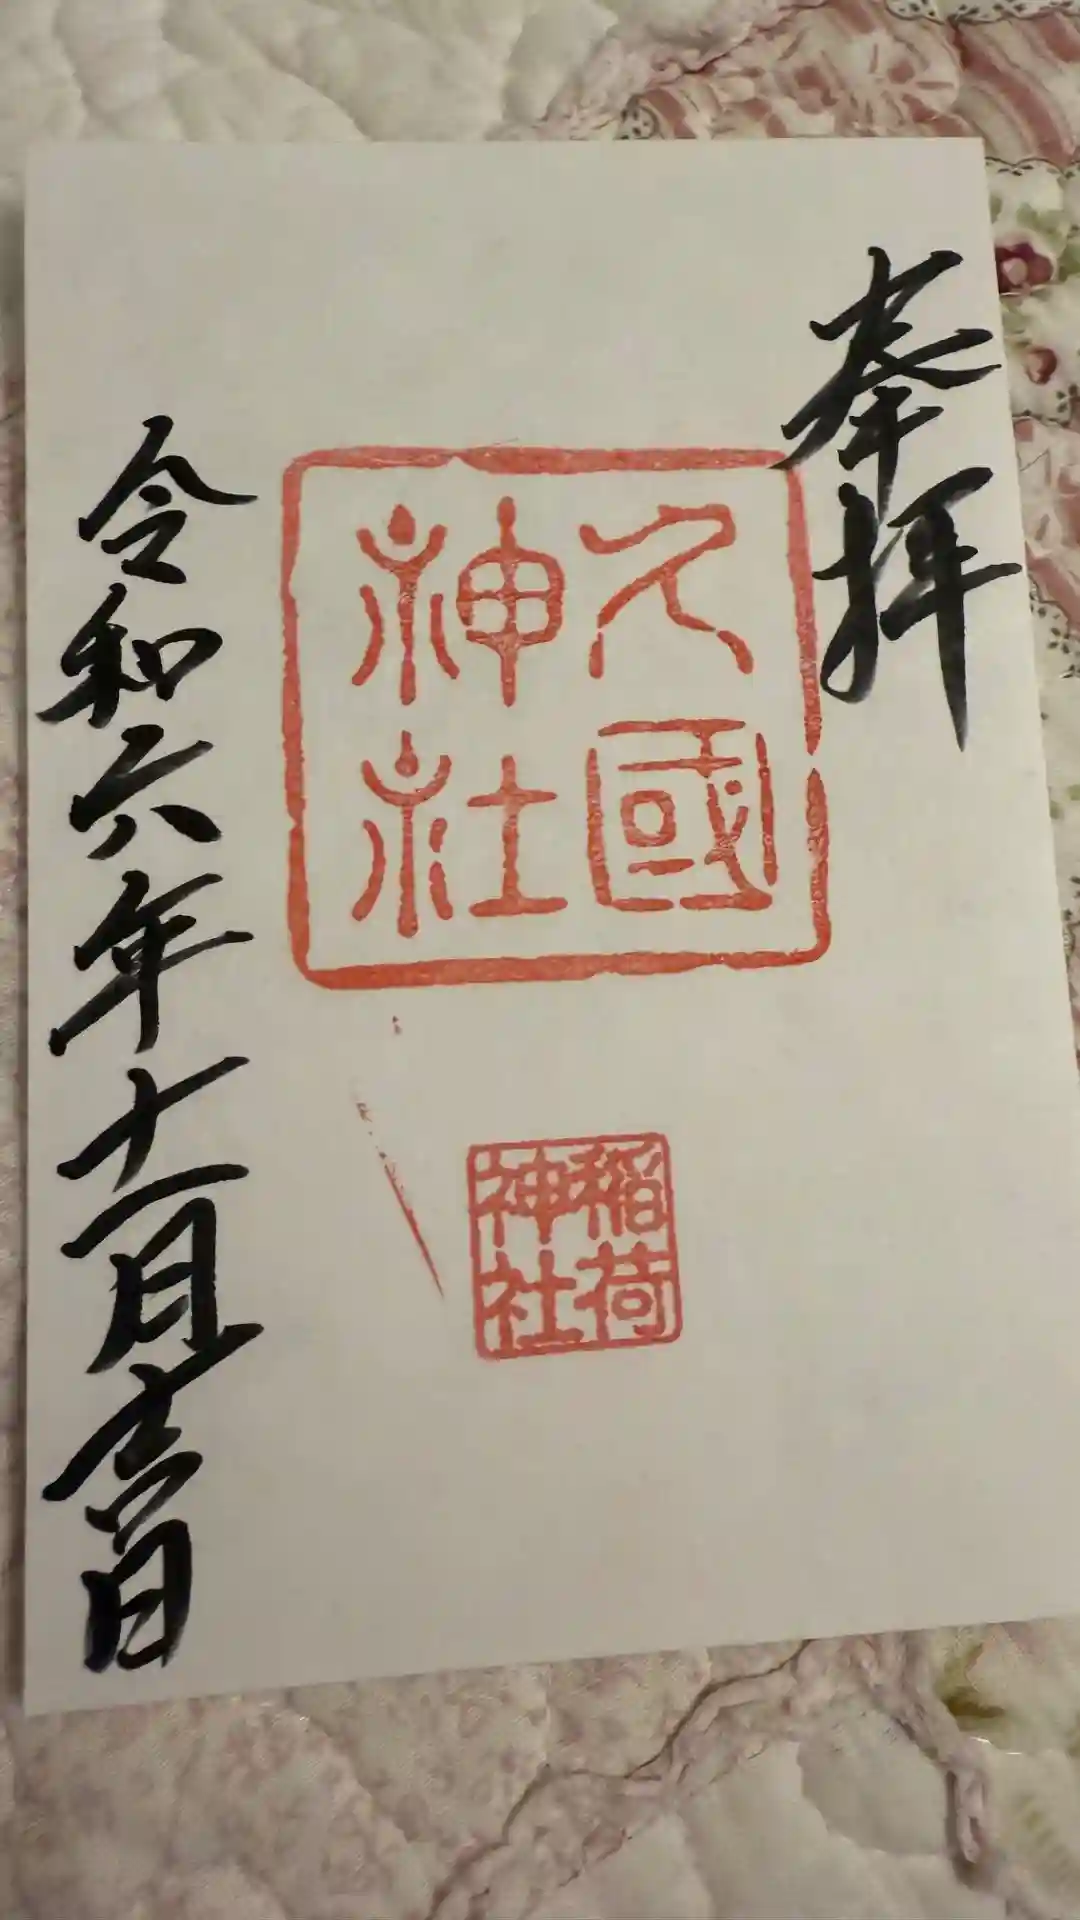 奉拝
久國
神社
稲荷
神社
令和六年十一月日